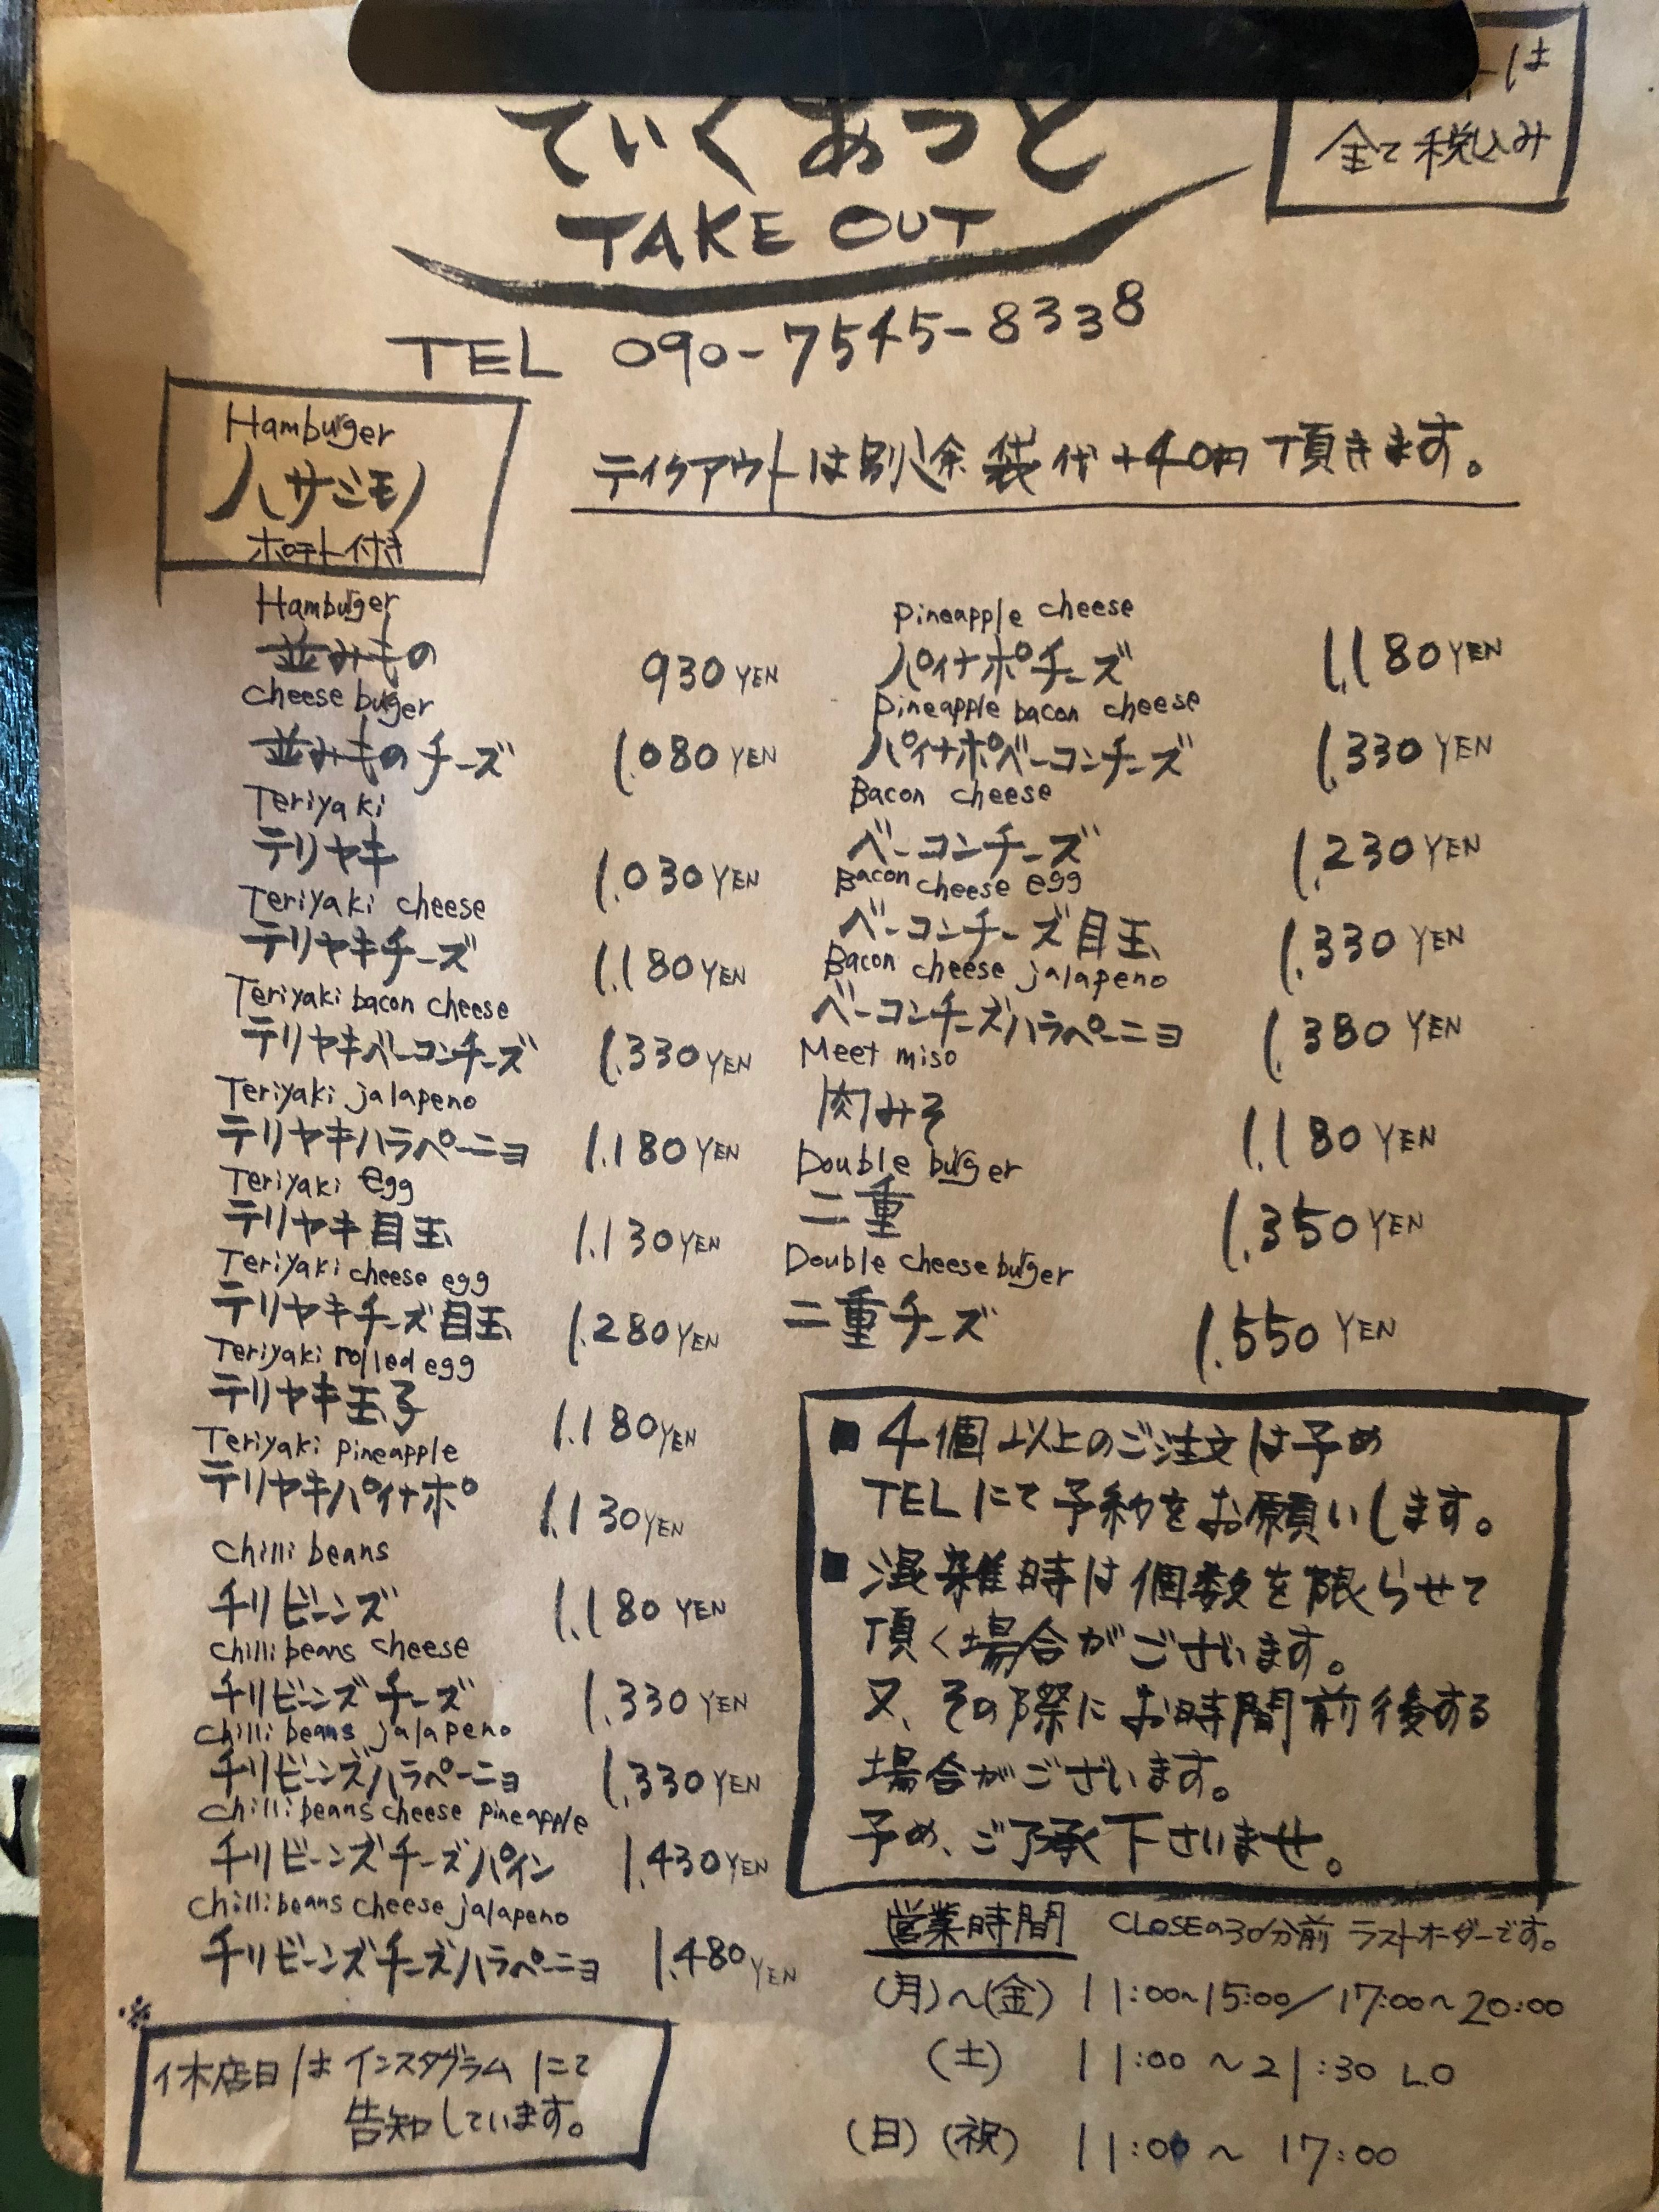 ーは
全て税込み
ていくあうと
TAKE OUT
TEL 090-7545-8338
Hamburger
ハサミモノ
ポテト付き
テイクアウトは別途袋代+40円頂きます。
Hamburger
並みもの 930 YEN
cheese burger
並みものチーズ 1.080 YEN
Teriyaki
テリヤキ 1.030 YEN
Teriyaki cheese
テリヤキチーズ 1.180 YEN
Teriyaki bacon cheese
テリヤキベーコンチーズ 1.330 YEN
Teriyaki jalapeno
テリヤキハラペーニョ 1.180 YEN
Teriyaki egg
テリヤキ目玉 1.130 YEN
Teriyaki cheese egg
テリヤキチーズ目玉 1.280 YEN
Teriyaki rolled egg
テリヤキ玉子 1.180 YEN
Teriyaki pineapple
テリヤキパイナポ 1.130 YEN
chilli beans
チリビーンズ 1.180 YEN
chilli beans cheese
チリビーンズチーズ 1.330 YEN
chilli beans jalapeno
チリビーンズハラペーニョ 1.330 YEN
chilli beans cheese pineapple
チリビーンズチーズパイン 1.430 YEN
chilli beans cheese jalapeno
チリビーンズチーズハラペーニョ 1.480 YEN
※
休店日はインスタグラムにて
告知しています。
pineapple cheese
パイナポチーズ 1.180 YEN
pineapple bacon cheese
パイナポベーコンチーズ 1.330 YEN
Bacon cheese
ベーコンチーズ 1.230 YEN
Bacon cheese egg
ベーコンチーズ目玉 1.330 YEN
Bacon cheese jalapeno
ベーコンチーズハラペーニョ 1.380 YEN
Meet miso
肉みそ 1.180 YEN
Double burger
二重 1.350 YEN
Double cheese burger
二重チーズ 1.550 YEN
■ 4個以上のご注文は予め
TELにて予約をお願いします。
■ 混雑時は個数を限らせて
頂く場合がございます。
又、その際にお時間前後する
場合がございます。
予め、ご了承下さいませ。
営業時間 CLOSEの30分前ラストオーダーです。
(月)~(金) 11:00~15:00/17:00~20:00
(土) 11:00~21:30 L.O
(日)(祝) 11:00~17:00